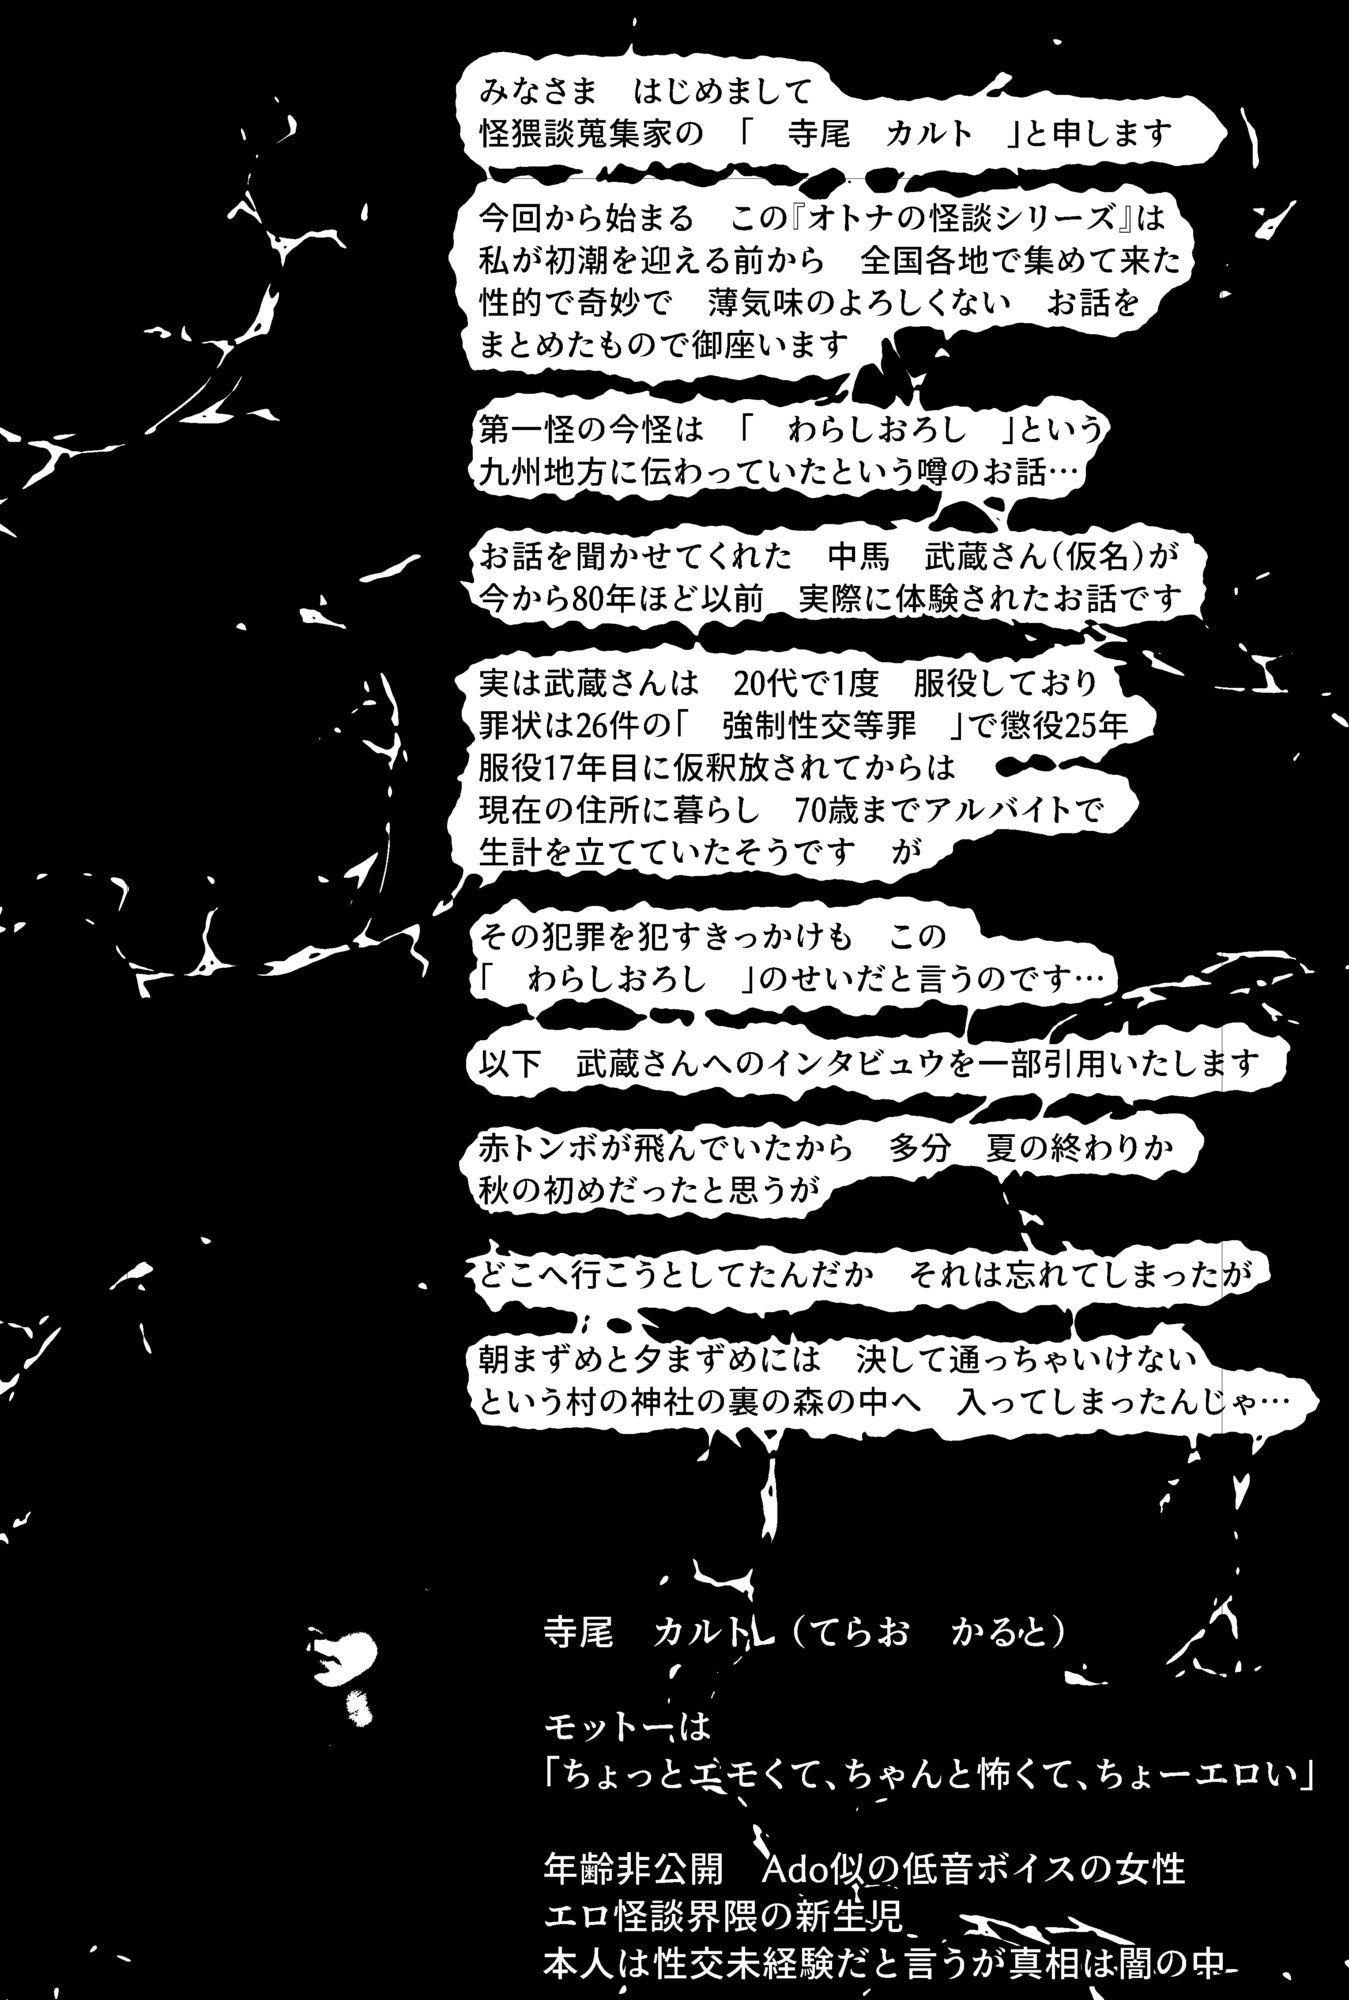 みなさま　はじめまして
怪猥談蒐集家の　「　寺尾　カルト　」と申します
今回から始まる　この『オトナの怪談シリーズ』は
私が初潮を迎える前から　全国各地で集めて来た
性的で奇妙で　薄気味のよろしくない　お話を
まとめたもので御座います
第一怪の今怪は　「　わらしおろし　」という
九州地方に伝わっていたという噂のお話…
お話を聞かせてくれた　中馬　武蔵さん（仮名）が
今から80年ほど以前　実際に体験されたお話です
実は武蔵さんは　20代で1度　服役しており
罪状は26件の「　強制性交等罪　」で懲役25年
服役17年目に仮釈放されてからは
現在の住所に暮らし　70歳までアルバイトで
生計を立てていたそうです　が
その犯罪を犯すきっかけも　この
「　わらしおろし　」のせいだと言うのです…
以下　武蔵さんへのインタビュウを一部引用いたします
赤トンボが飛んでいたから　多分　夏の終わりか
秋の初めだったと思うが
どこへ行こうとしてたんだか　それは忘れてしまったが
朝まずめと夕まずめには　決して通っちゃいけない
という村の神社の裏の森の中へ　入ってしまったんじゃ…
寺尾　カルト（てらお　かると）
モットーは
「ちょっとエモくて、ちゃんと怖くて、ちょーエロい」
年齢非公開　Ado似の低音ボイスの女性
エロ怪談界隈の新生児
本人は性交未経験だと言うが真相は闇の中